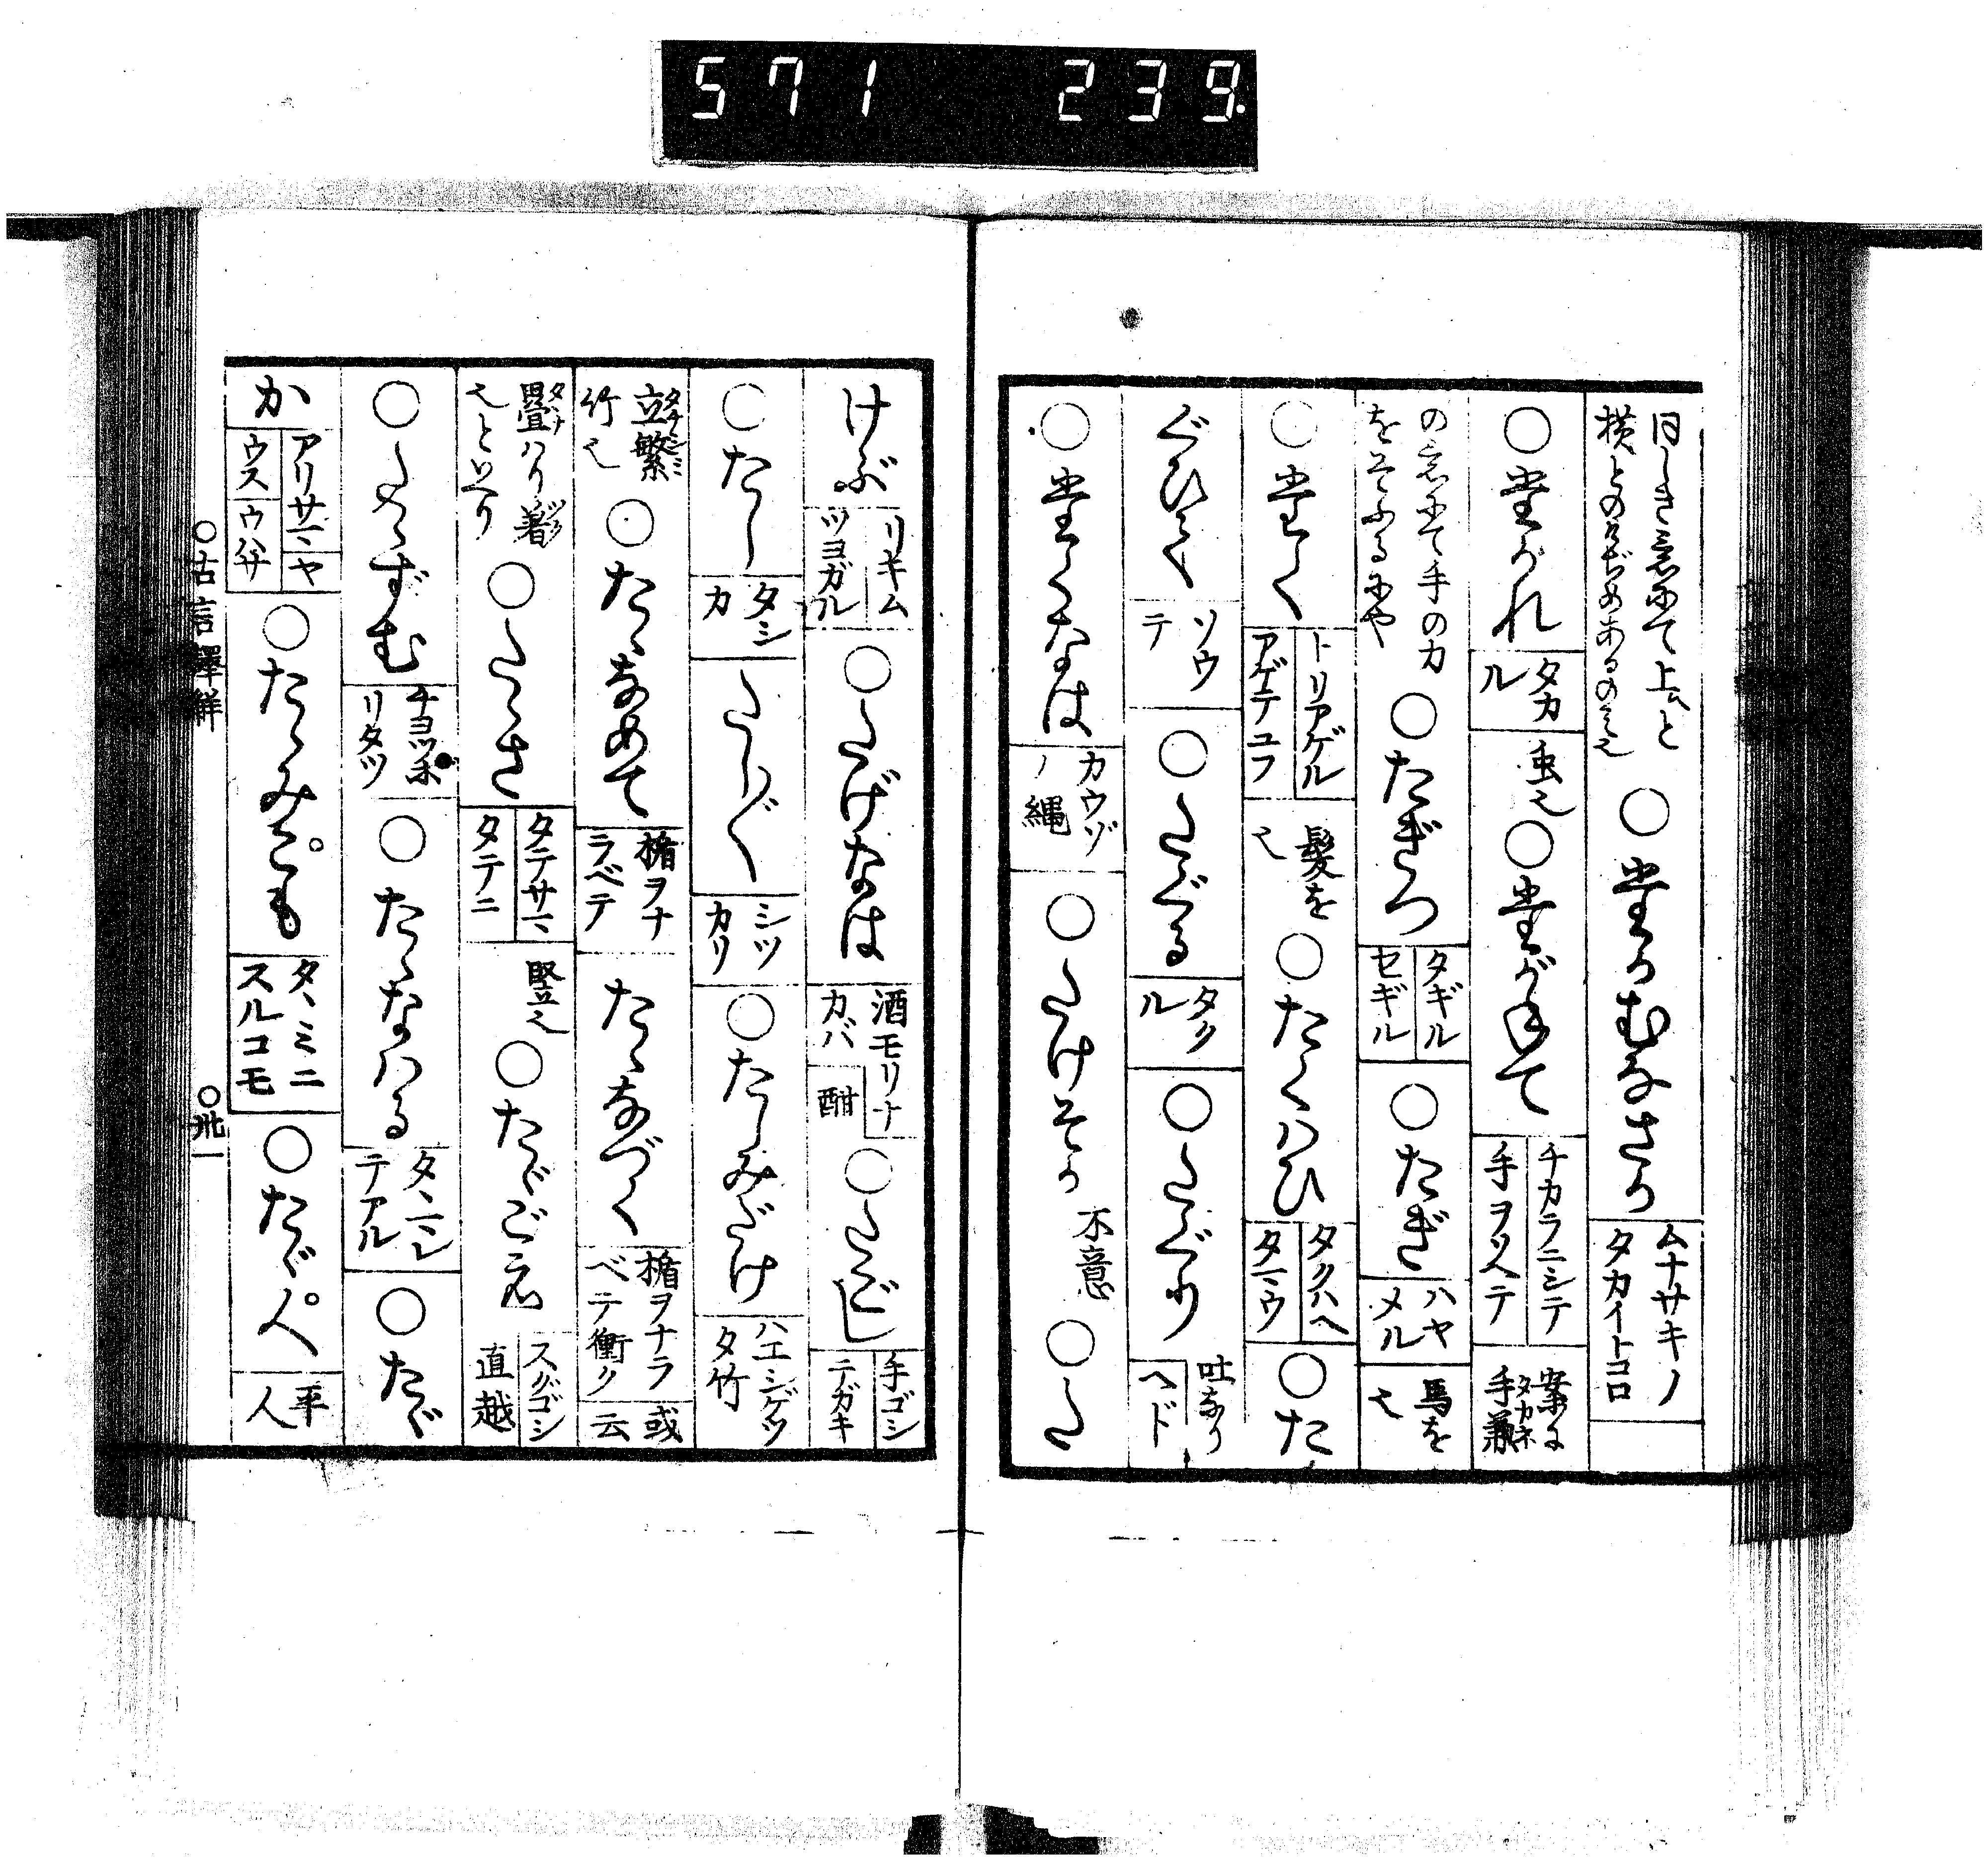 571 239.
同しき意にて上と
横とのけぢめあるのミ也
○たかむなさか
ムナサキノ
タカイトコロ
○たがれ
タカ
ル
虫也
○たがねて
チカラニシテ
手ヲツヘテ
案に
手兼
タカネ
の意にて手の力
をそふるにや
○たぎつ
タギル
セギル
○たぎ
ハヤ
メル
馬を
也
○たく
トリアゲル
アゲテユフ
髪を
也
○たくハひ
タクハヘ
タマウ
○た
ぐひて
ソウ
テ
○たぐる
タク
ル
○たぐり
吐なり
ヘド
○たくなは
カウゾ
ノ縄
○たけそか
不意
○た
けぶ
リキム
ツヨガル
○たげなは
酒モリナ
カバ
酣
○たごし
手ゴシ
テガキ
○たし
タシ
カ
たしたし
シツ
カリ
○たしみだけ
ハエシゲツ
タ竹
立繁
タチシミ
竹也
○たゝなめて
楯ヲナ
ラベテ
たゝなづく
楯ヲナラ
ベテ衝ク
或
云
畳ハり着
也といへり
○たゝさ
タテサマ
タテニ
竪也
○たゞごえ
スグゴシ
直越
○たゝずむ
チヨツホ
リタツ
○たゝなハる
タヽマレ
テアル
○たゞ
か
アリサマ
ヤ
ウス
ウハサ
○たゝみこも
タヽミニ
スルコモ
○たゞ人
平
人
○古言譯解
○卅一